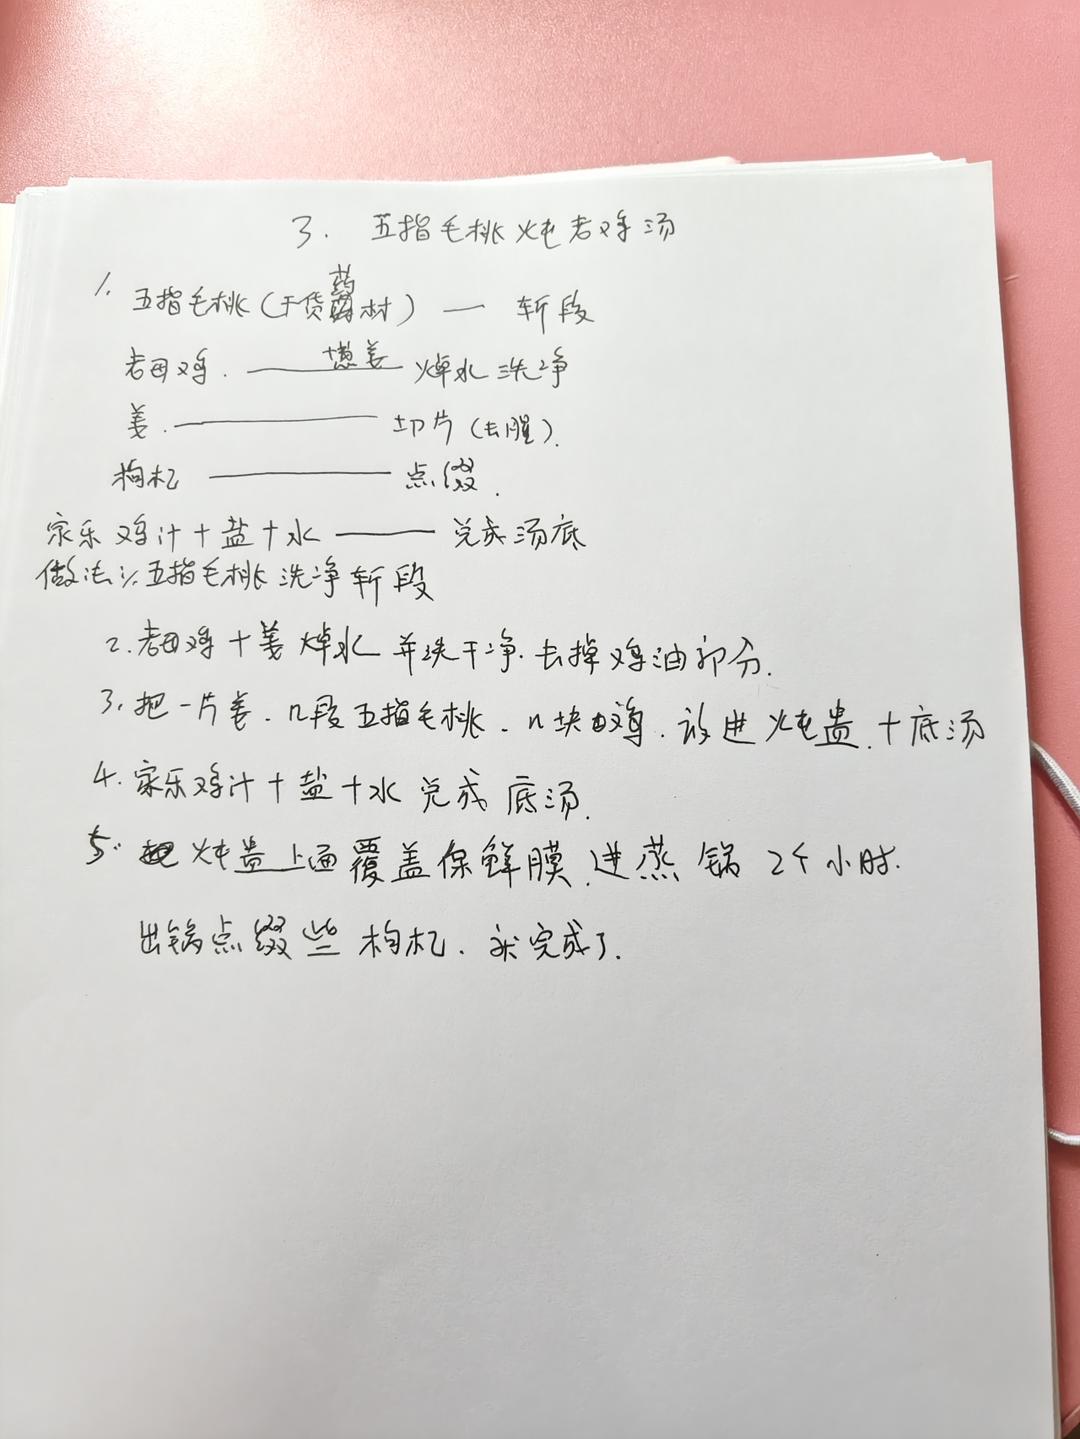 3. 五指毛桃炖老鸡汤
1. 五指毛桃(干货药材) — 斩段
老母鸡. —+葱姜— 焯水洗净
姜. — 切片(去腥).
枸杞 — 点缀.
家乐鸡汁+盐+水 — 兑成汤底
做法:1. 五指毛桃洗净斩段
2. 老母鸡+姜焯水并洗干净. 去掉鸡油部分.
3. 把一片姜. 几段五指毛桃. 几块母鸡. 放进炖盅. +底汤
4. 家乐鸡汁+盐+水 兑成底汤.
5. 炖盅上面覆盖保鲜膜. 进蒸锅2个小时.
出锅点缀些枸杞. 就完成了.